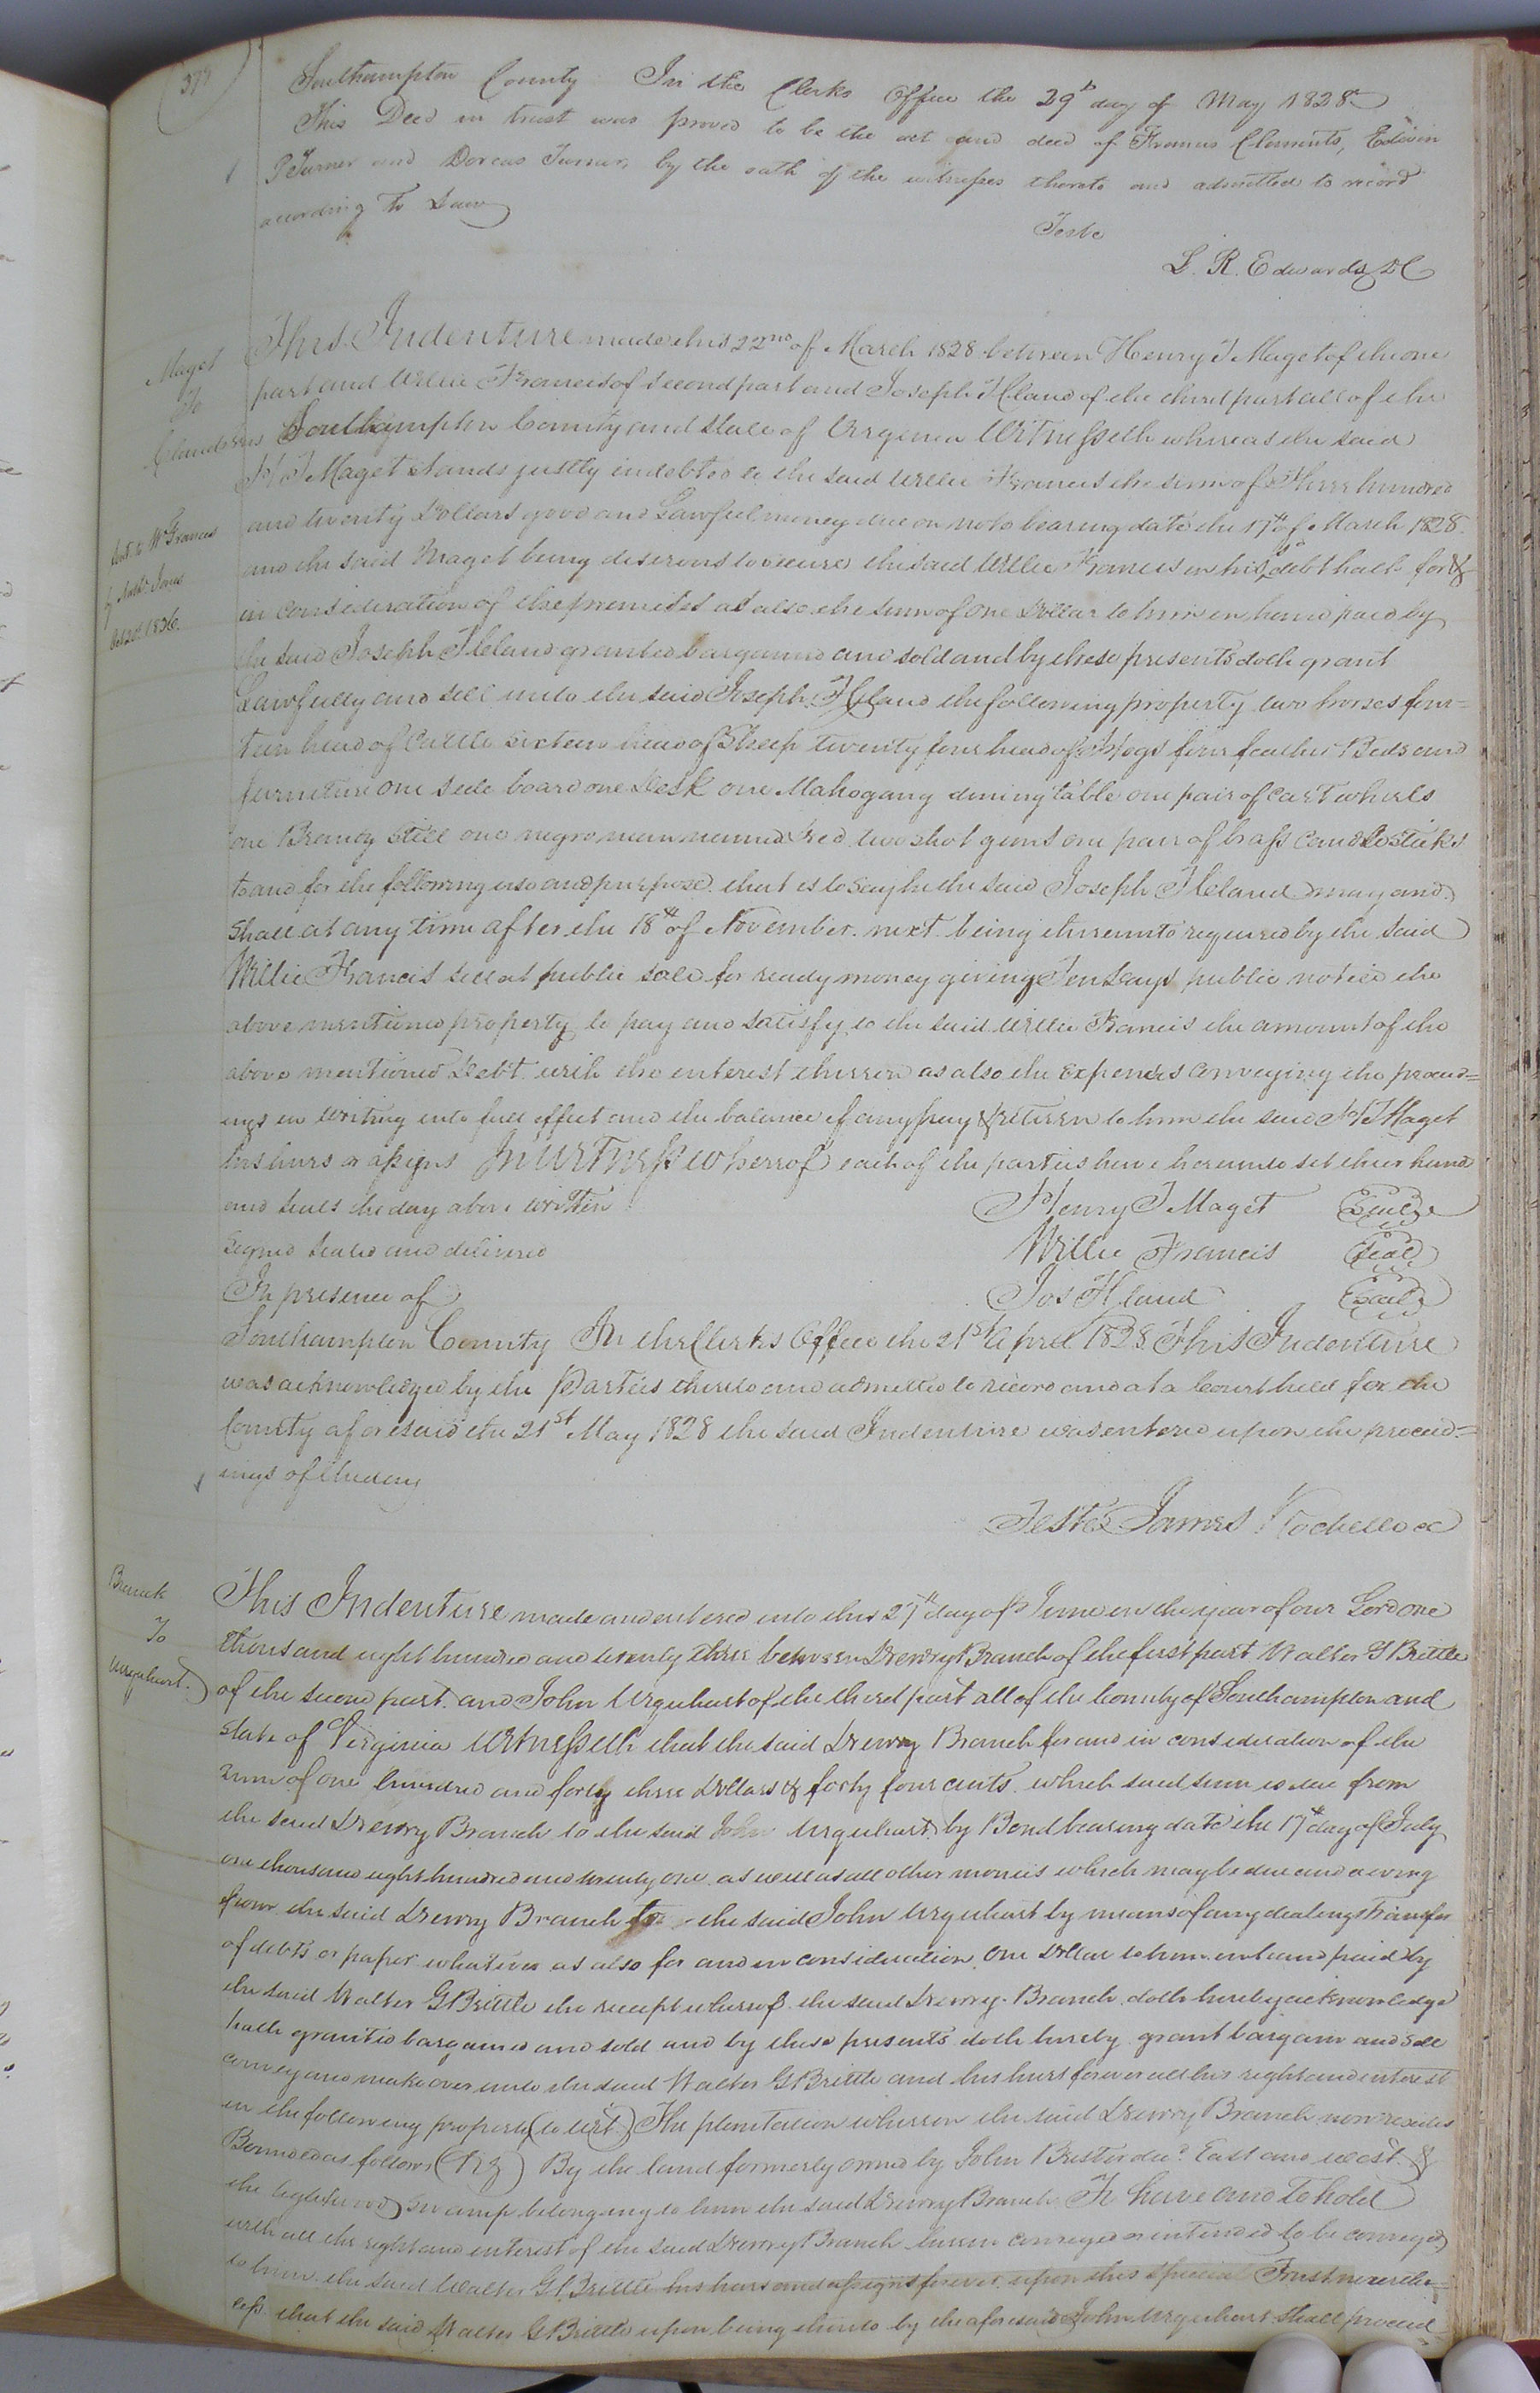 Southampton County In the Clerks Office the 29th day of May 1828
This Deed in trust was proved to be the act and deed of Francus Clements, Edwin
P Turner and Dorcas Turner, by the oath of the witnesses thereto and admitted to record
according to Law
Teste
L. R. Edwards DC
Maget
To
This Indenture made this 22nd of March 1828 between Henry J Maget of the one
part and Willie Francis of second part and Joseph H land of the third part all of the
Southampton County and State of Virginia Witnesseth whereas the said
H J Maget stands justly indebted to the said Willie Francis the sum of Three hundred
and twenty Dollars good and Lawful money due on note bearing date the 17th of March 1828
and the said Maget being desirous to secure the said Willie Francis in his sd debt hath for &
in consideration of the premises as also the sum of one Dollar to him in hand paid by
the said Joseph Heland granted bargained and sold and by these presents doth grant
Lawfully and sell unto the said Joseph Heland the following property two horses four=
teen head of Cattle sixteen head of Sheep twenty four head of Hogs four feather Beds and
furniture one side board one Desk one Mahogany dining table one pair of cart wheels
one Brandy still one negro man named two shot guns one pair of brass candlesticks
to and for the following use and purpose that is to say he the said Joseph Heland may and
shall at any time after the 18th of November next being thereunto required by the said
Willie Francis sell at public sale for ready money giving Ten days public notice the
above mentioned property to pay and satisfy to the said Willie Francis the amount of the
above mentioned Debt with the interest thereon as also the Expences conveying the proceed=
ings in writing into full effect and the balance if any pay & return to him the said H J Maget
his heirs or assigns In Witness whereof each of the parties have hereunto set their hand
and seals the day above written
Henry J Maget Seal
Signed sealed and delivered
Willie Francis Seal
In presence of
Jos H land Seal
Southampton County In the Clerks Office the 21st April 1828 This Indenture
was acknowledged by the Parties thereto and admitted to record and at a Court held for the
County aforesaid the 21st May 1828 the said Indenture was entered upon the proceed=
ings of the day
Teste James Rochelle cc
Branch
To
Urquhart
This Indenture made and entered into this 27th day of June in the year of our Lord one
thousand eight hundred and twenty three between Drewry Branch of the first part Walter G Brittle
of the second part and John Urquhart of the third part all of the County of Southampton and
State of Virginia Witnesseth that the said Drewry Branch for and in consideration of the
sum of one hundred and forty three Dollars & forty four cents which said sum is due from
the said Drewry Branch to the said John Urquhart by Bond bearing date the 17th day of July
one thousand eight hundred and twenty one as well as all other monies which may be due and owing
from the said Drewry Branch to the said John Urquhart by means of any dealings transfer
of debts or paper whatever as also for and in consideration One Dollar to him in hand paid by
the said Walter G Brittle the receipt whereof the said Drewry Branch doth hereby acknowledge
hath granted bargained and sold and by these presents doth hereby grant bargain and sell
convey and make over unto the said Walter G Brittle and his heirs forever all his right and interest
in the following property (to wit) The plantation wherein the said Drewry Branch now resides
Bounded as follows (Viz) By the land formerly owned by John decd East and west &
the swamp belonging to him the said Drewry Branch To have and To hold
with all the right and interest of the said Drewry Branch herein conveyed or intended to be conveyed
to him the said Walter G Brittle his heirs and assigns forever upon this special Trust neverthe=
less that the said Walter G Brittle upon being thereto by the aforesaid John Urquhart shall proceed